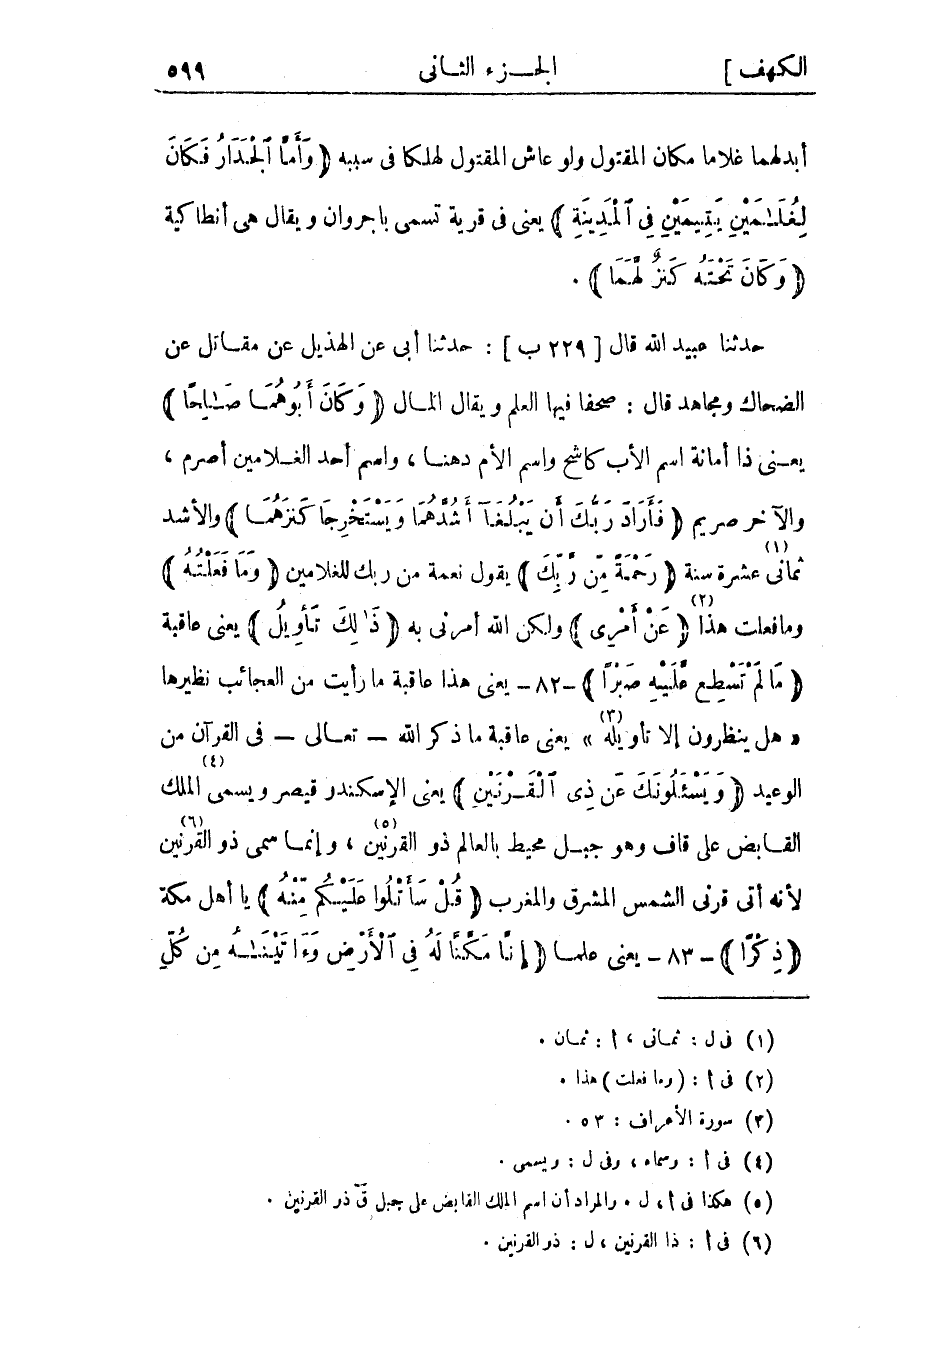 الكهف ] الجـــزء الثـانى ٥٩٩
أبدلهما غلاما مكان المقتول ولو عاش المقتول لهلكا فى سببه ﴿ وَأَمَّا ٱلْجِدَارُ فَكَانَ
لِغُلَـٰمَيْنِ يَتِيمَيْنِ فِى ٱلْمَدِينَةِ ﴾ يعنى فى قرية تسمى باجروان ويقال هى أنطاكية
﴿ وَكَانَ تَحْتَهُ كَنزٌ لَّهُمَا ﴾ .
حدثنا عبيد الله قال [ ٢٢٩ ب ] : حدثنا أبى عن الهذيل عن مقـاتل عن
الضحاك ومجاهد قال : صحفا فيها العلم ويقال المـال ﴿ وَكَانَ أَبُوهُمَـا صَـٰلِحًا ﴾
يعـنى ذا أمانة اسم الأب كاشح واسم الأم دهنـا ، واسم أحد الغـلامين أصرم ،
والآخر صريم ﴿ فَأَرَادَ رَبُّكَ أَن يَبْلُغَآ أَشُدَّهُمَا وَيَسْتَخْرِجَا كَنزَهُمَـا ﴾ والأشد
ثمانى (١) عشرة سنة ﴿ رَحْمَةً مِّن رَّبِّكَ ﴾ يقول نعمة من ربك للغلامين ﴿ وَمَا فَعَلْتُهُ ﴾
ومافعلت هذا (٢) ﴿ عَنْ أَمْرِى ﴾ ولكن الله أمرنى به ﴿ ذَٰلِكَ تَأْوِيلُ ﴾ يعنى عاقبة
﴿ مَا لَمْ تَسْطِع عَّلَيْهِ صَبْرًا ﴾ ـ ٨٢ ـ يعنى هذا عاقبة ما رأيت من العجائب نظيرها
« هل ينظرون إلا تأويله (٣) » يعنى عاقبة ما ذكر الله — تعـالى — فى القرآن من
الوعيد ﴿ وَيَسْـَٔلُونَكَ عَن ذِى ٱلْقَـرْنَيْنِ ﴾ يعنى الإسكندر قيصر ويسمى (٤) الملك
القـابض على قاف وهو جبـل محيط بالعالم ذو القرنين (٥) ، وإنمـا سمى ذو القرنين (٦)
لأنه أتى قرنى الشمس المشرق والمغرب ﴿ قُلْ سَأَتْلُوا عَلَيْـكُم مِّنْهُ ﴾ يا أهل مكة
﴿ ذِكْرًا ﴾ ـ ٨٣ ـ يعنى علمـا ﴿ إِنَّا مَكَّنَّا لَهُ فِى ٱلْأَرْضِ وَءَاتَيْنَـٰهُ مِن كُلِّ
(١) فى ل : ثمـانى ، أ : ثمـان .
(٢) فى أ : (وما فعلت) هذا .
(٣) سورة الأعراف : ٥٣ .
(٤) فى أ : وسماه ، وفى ل : ويسمى .
(٥) هكذا فى أ ، ل . والمراد أن اسم الملك القابض على جبل قٓ ذو القرنين .
(٦) فى أ : ذا القرنين ، ل : ذو القرنين .